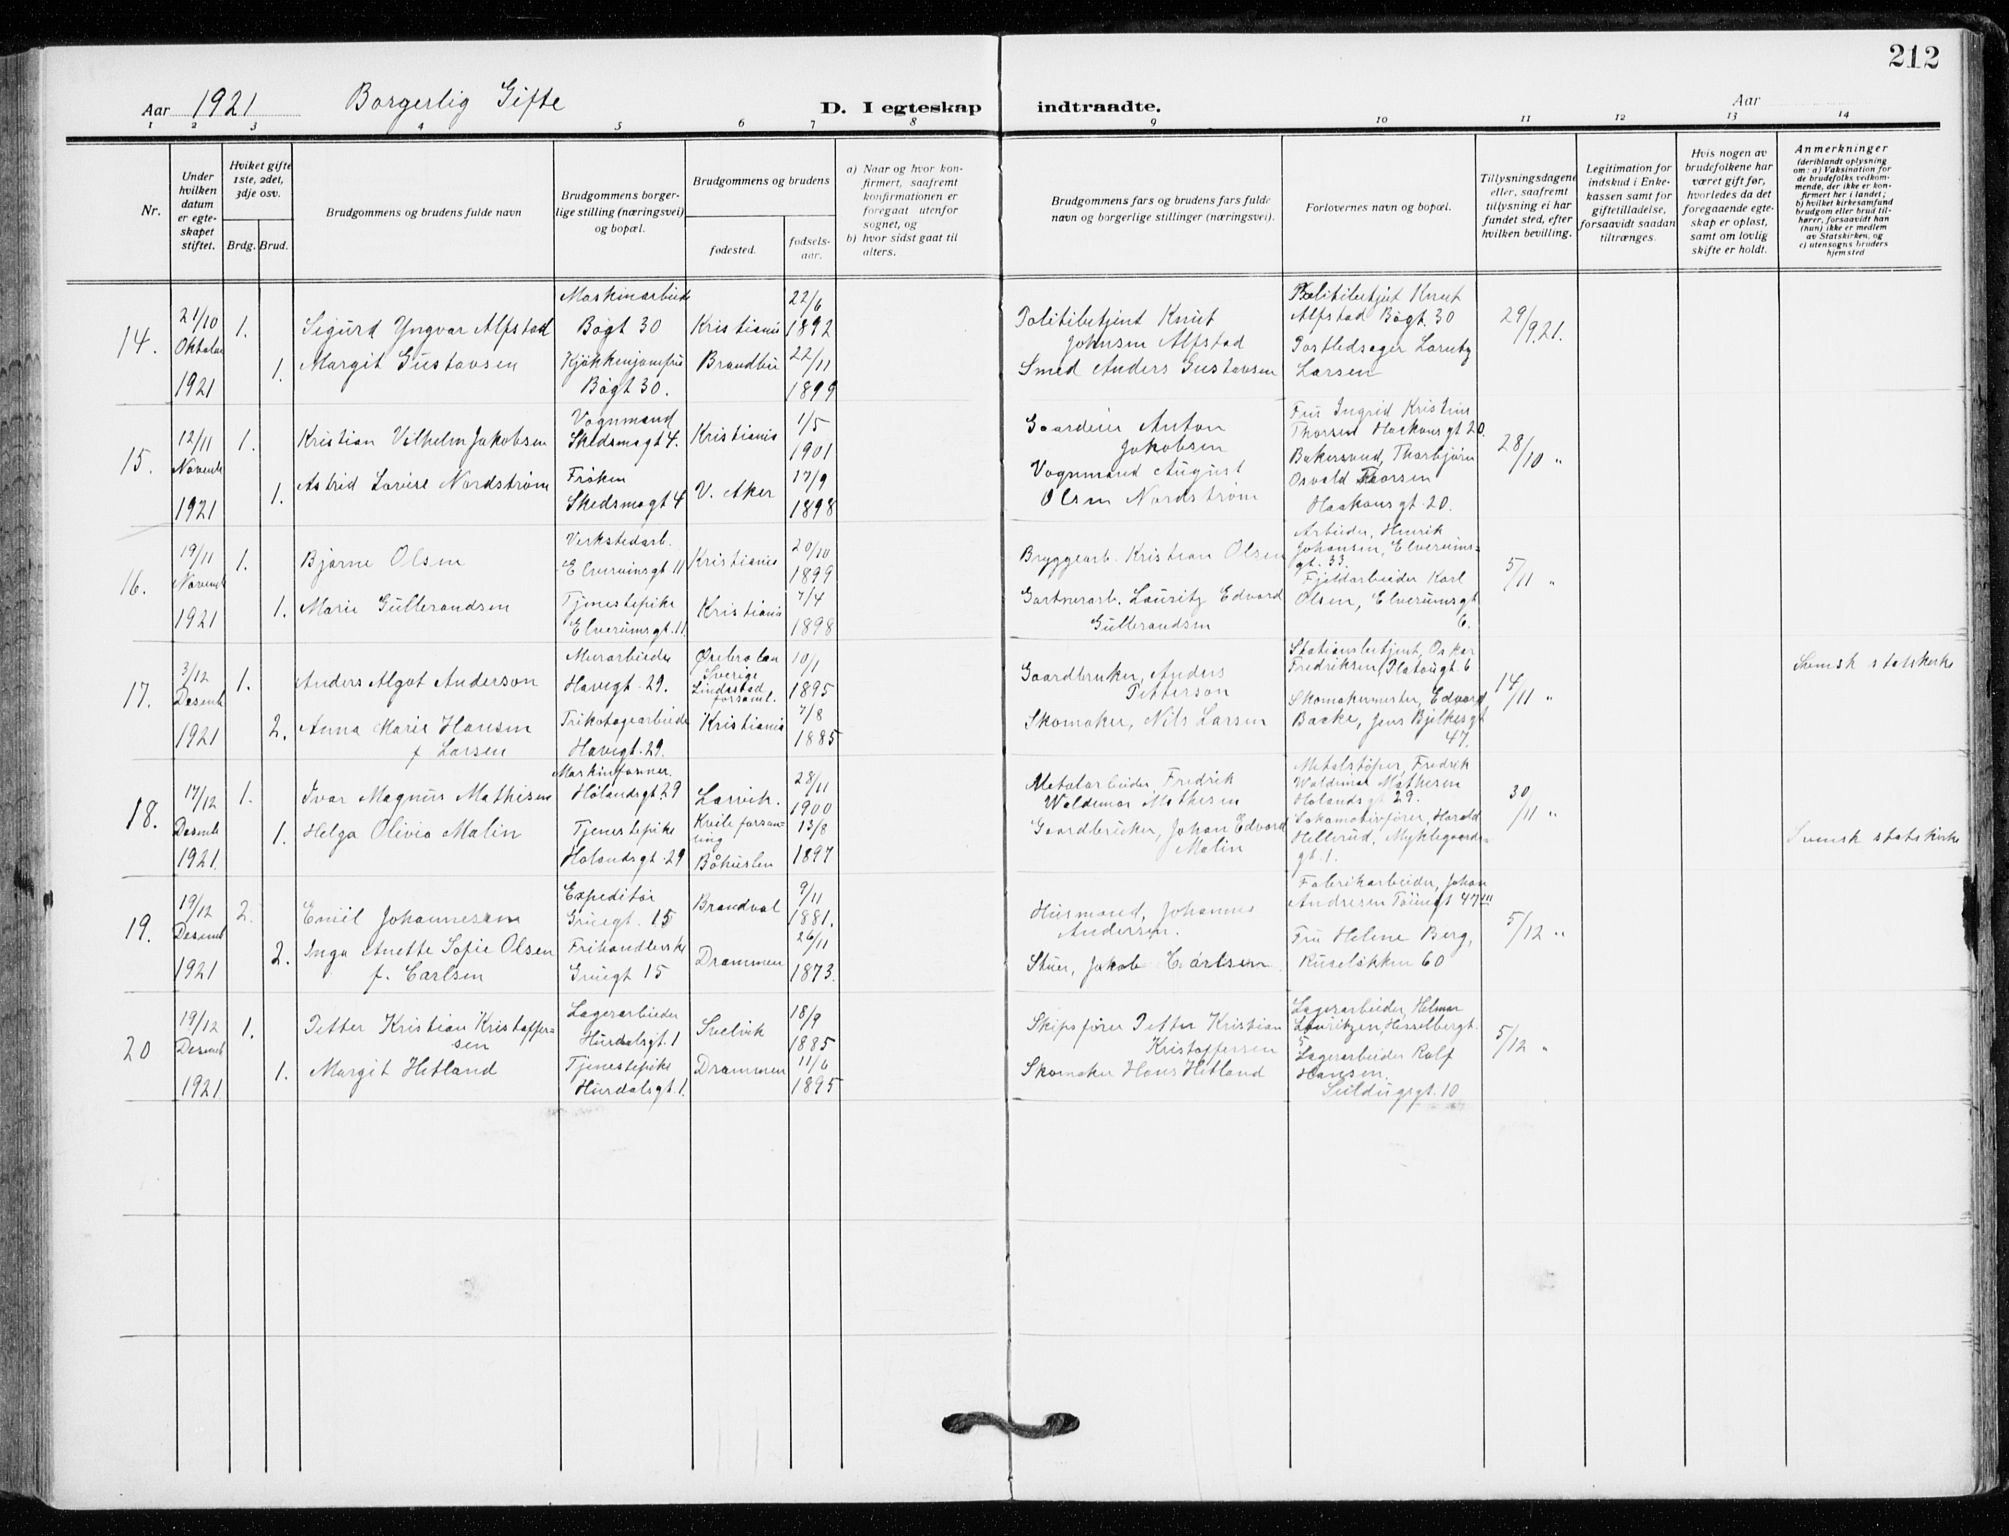 212
Aar 1921 Borgerlig Gifte D. I egteskap indtraadte. Aar
1 2 3 4 5 6 7 8 9 10 11 12 13 14
Nr.
Under hvilken datum er egte- skapet stiftet.
Hviket gifte 1ste, 2det, 3dje osv.
Brdg. Brud.
Brudgommens og brudens fulde navn
Brudgommens borger- lige stilling (næringsvei) og bopæl.
Brudgommens og brudens
fødested.
fødsels- aar.
a) Naar og hvor kon- firmert, saafremt konfirmationen er foregaat utenfor sognet, og
b) hvor sidst gaat til alters.
Brudgommens fars og brudens fars fulde navn og borgerlige stillinger (næringsvei).
Forlovernes navn og bopæl.
Tillysningsdagene eller, saafremt tillysning ei har fundet sted, efter hvilken bevilling.
Legitimation for indskud i Enke- kassen samt for giftetilladelse, forsaavidt saadan tiltrænges.
Hvis nogen av brudefolkene har været gift før, hvorledes da det foregaaende egte- skap er opløst, samt om lovlig skifte er holdt.
Anmerkninger
(deriblandt oplysning om: a) Vaksination for de brudefolks vedkom- mende, der ikke er kon- firmert her i landet; b) hvilket kirkesamfund brudgom eller brud til- hører, forsaavidt han (hun) ikke er medlem av Statskirken, og c) utensogns bruders hjemsted
14. 21/10 Oktober 1921
1. Sigurd Yngvar Alfstad
Maskinarbeid Bøgt 30
Kristiania 22/6 1892
1. Margit Gustavsen
Kjøkkenjomfru Bøgt 30.
Brandbu 22/11 1899
Politibetjent Knut Johnsen Alfstad
Smed Anders Gustavsen
Politibetjent Knut Alfstad Bøgt. 30
Postledsager Larsen
29/9.21.
15. 12/11 Novemb 1921
1. Kristian Vilhelm Jakobsen
Vognmand Skedsmogt 4.
Kristiania 1/5 1901
1. Astrid Lovise Nordstrøm
Frøken Skedsmogt 4
V. Aker 17/9 1898
Gaardeier Anton Jakobsen
Vognmand August Olsen Nordstrøm
Fru Ingrid Kristine Thorsen Haakonsgt 20.
Bakersvend, Thorbjørn Osvald Thorsen Haakonsgt. 20.
28/10 "
16. 19/11 Novemb 1921
1. Bjarne Olsen
Verkstedarb. Elverumsgt 11
Kristiania 20/10 1899
1. Marie Gulbrandsen
Tjenestepike Elverumsgt. 11
Kristiania 7/4 1898
Bryggearb. Kristian Olsen
Gartnerarb. Lauritz Edvard Gulbrandsen
Arbeider, Henrik Johansen, Elverums- gt. 33.
Fjeldarbeider Karl Olsen, Elverumsgt 6.
5/11 "
17. 3/12 Desemb 1921
1. Anders Algot Anderson
Murarbeider Havegt. 29.
Ørebro len Sverige Lindesstad forsaml. 10/1 1895
2. Anna Marie Hansen f. Larsen
Trikotagearbeide Havegt. 29.
Kristiania 7/8 1885
Gaardbruker, Anders Petterson
Skomaker, Nils Larsen
Stationsbetjent, Oskar Fredriksen, Platougt 6
Skomakermester, Edvard Backe, Jens Bjelkesgt 47.
14/11 "
Svensk statskirke
18. 17/12 Desemb 1921.
1. Ivar Magnus Mathisen
Maskinformer. Hølandsgt 29
Larvik. 28/11 1900
1. Helga Olivia Malin
Tjenestepike Hølandsgt. 29
Kville forsam- ling Båhuslen 13/8 1897
Metalarbeider, Fredrik Waldemar Mathisen
Gaardbruker, Johan Edvard Malin
Metalstøper, Fredrik Waldemar Mathisen Hølandsgt 29.
Lokomotivfører, Harald Hellerud, Myklegaards- gt. 1.
30/11 "
Svensk statskirke
19. 19/12 Desemb 1921
2. Emil Johannesen
Expeditør Gruegt. 15
Brandval 9/11 1881.
2. Inga Anette Sofie Olsen f. Carlsen
Frihandlerske Gruegt 15
Drammen 26/11 1873.
Husmand, Johannes Andersen.
Stuer, Jakob Carlsen
Fabrikarbeider, Johan Andresen Tøiengt 47 III
Fru Helene Berg, Ruseløkken 60
5/12 "
20 19/12 Desemb 1921
1. Petter Kristian Kristoffer- sen
Lagerarbeider Hurdalsgt. 1
Svelvik 18/9 1885
1. Margit Hetland
Tjenestepike Hurdalsgt. 1.
Drammen 11/6 1895
Skipsfører Petter Kristian Kristoffersen
Skomaker Hans Hetland
Lagerarbeider, Helmer Lauritzen, Hesselbergt. 5
Lagerarbeider Rolf Hansen. Seildugsgt. 10
5/12 "